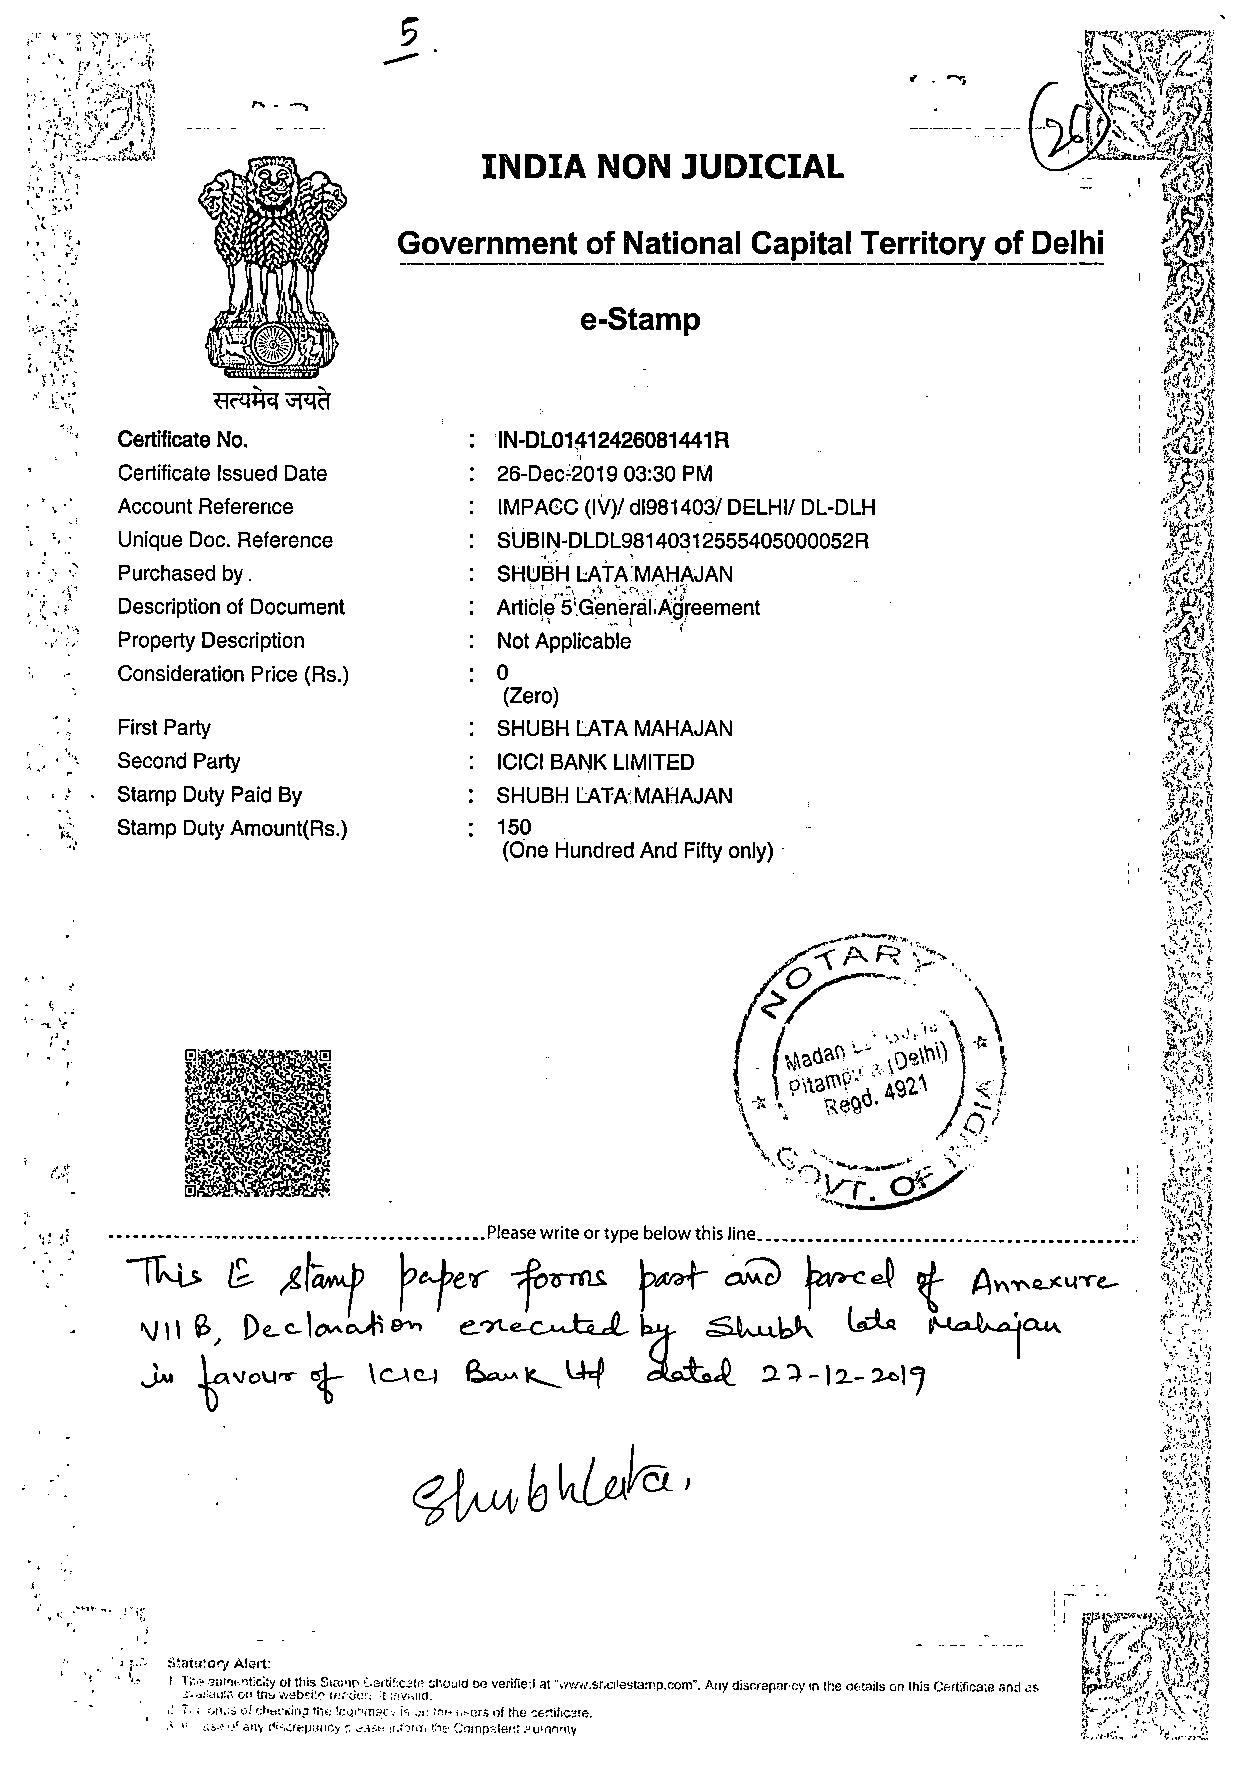 5.
20
INDIA NON JUDICIAL
Government of National Capital Territory of Delhi
e-Stamp
सत्यमेव जयते
Certificate No. : IN-DL01412426081441R
Certificate Issued Date : 26-Dec-2019 03:30 PM
Account Reference : IMPACC (IV)/ dl981403/ DELHI/ DL-DLH
Unique Doc. Reference : SUBIN-DLDL98140312555405000052R
Purchased by : SHUBH LATA MAHAJAN
Description of Document : Article 5 General Agreement
Property Description : Not Applicable
Consideration Price (Rs.) : 0
(Zero)
First Party : SHUBH LATA MAHAJAN
Second Party : ICICI BANK LIMITED
Stamp Duty Paid By : SHUBH LATA MAHAJAN
Stamp Duty Amount(Rs.) : 150
(One Hundred And Fifty only)
NOTARY
Madan
(Delhi)
Regd. 4921
GOVT. OF
Please write or type below this line
This E stamp paper forms part and parcel of Annexure
VII B, Declaration executed by Shubh lata Mahajan
in favour of ICICI Bank Ltd dated 27-12-2019
Shubhlata,
Statutory Alert:
1. The authenticity of this Stamp Certificate should be verified at "www.shcilestamp.com". Any discrepancy in the details on this Certificate and as
available on the website renders it invalid.
2. The onus of checking the legitimacy is on the users of the certificate.
3. In case of any discrepancy please inform the Competent Authority